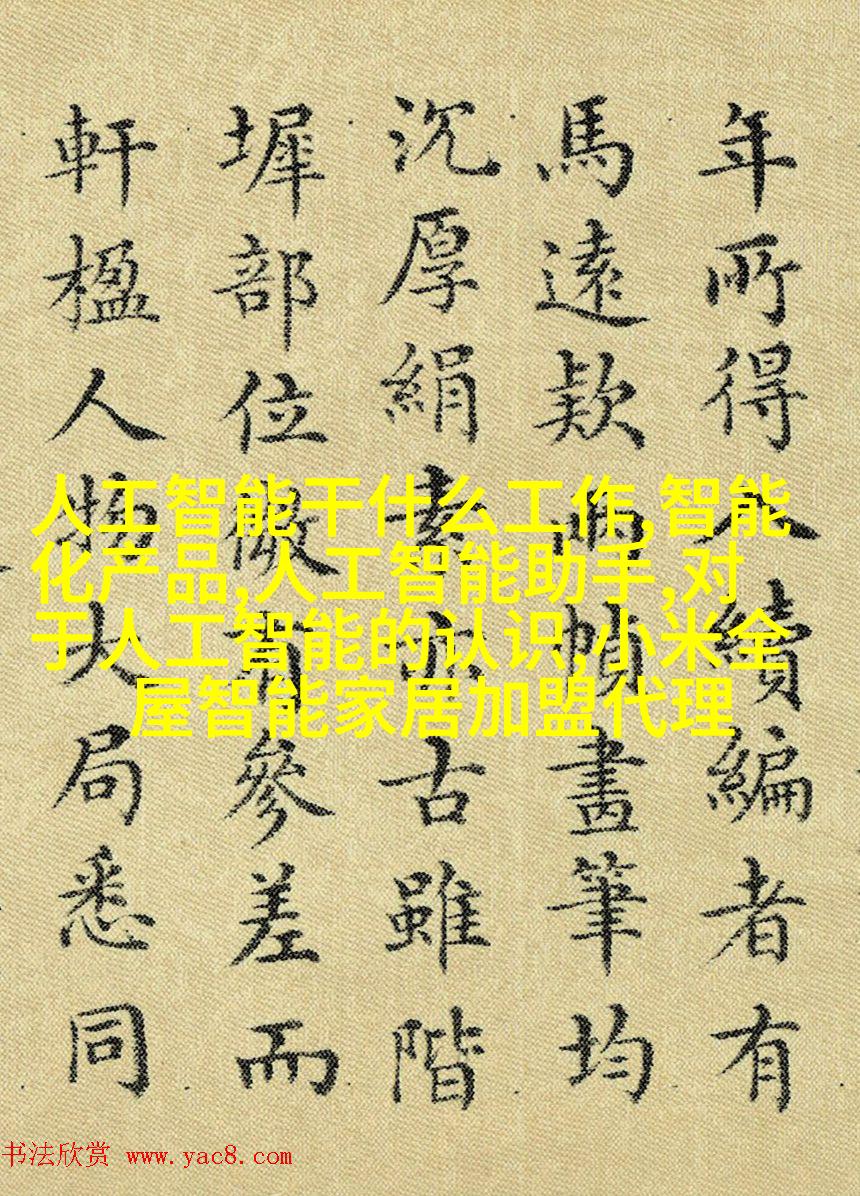 年所得入續編者有
馬遠欵兩幀畫筆均
沉厚絹素亦古雖階
墀部位微有參差而
軒楹人物大局悉同
人工智能干什么工作,智能
化产品,人工智能助手,对
于人工智能的认识,小米全
屋智能家居加盟代理
书法欣赏 www.yac8.com